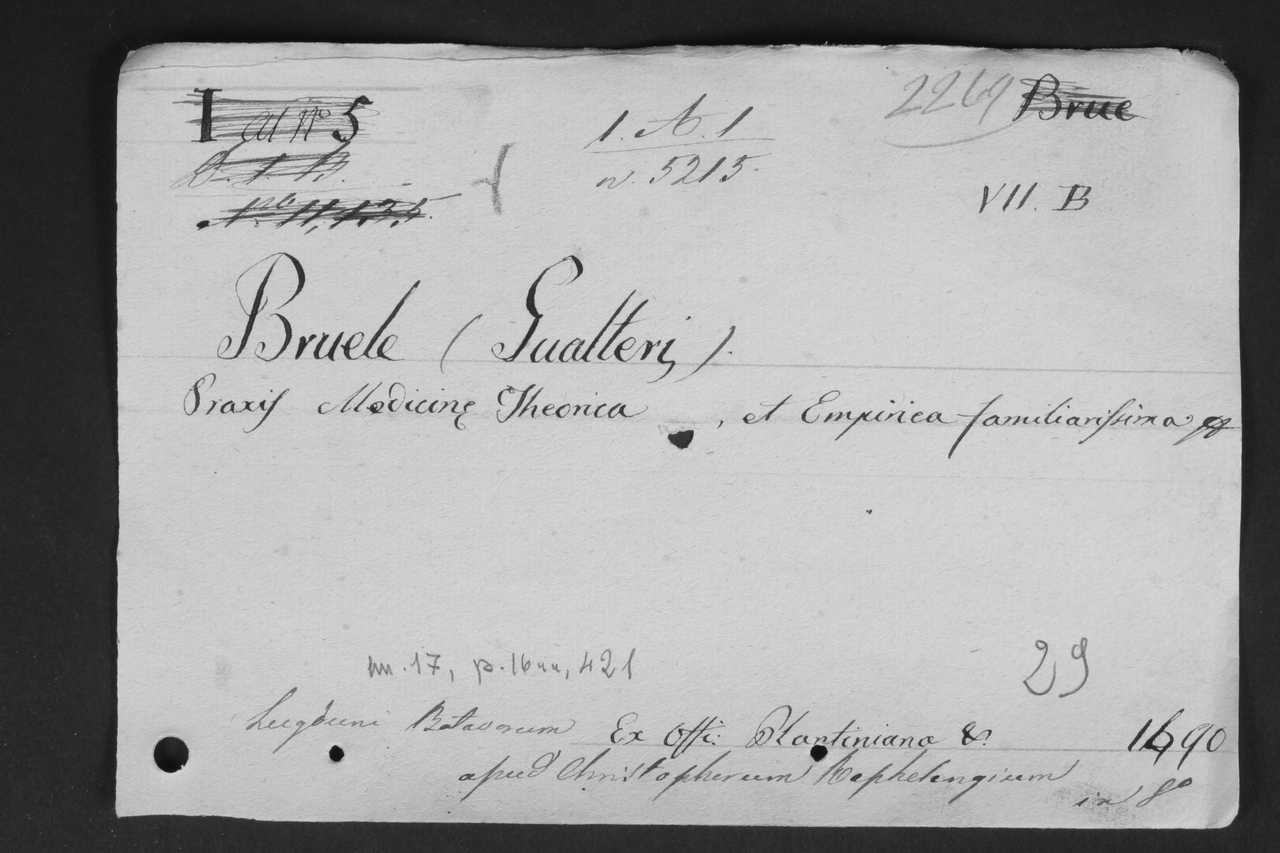 I al nº 5
1. A. 1
2269 Brue
n. 5215.
Nº 11,135.
VII. B
Bruele (Gualteri).
Praxis Medicinę Theorica, et Empirica familiarissima
nn. 17, p. 16nn, 421
29
Lugduni Batavorum Ex Offi: Plantiniana &: 1690
apud Christopherum Raphelengium
in 8º